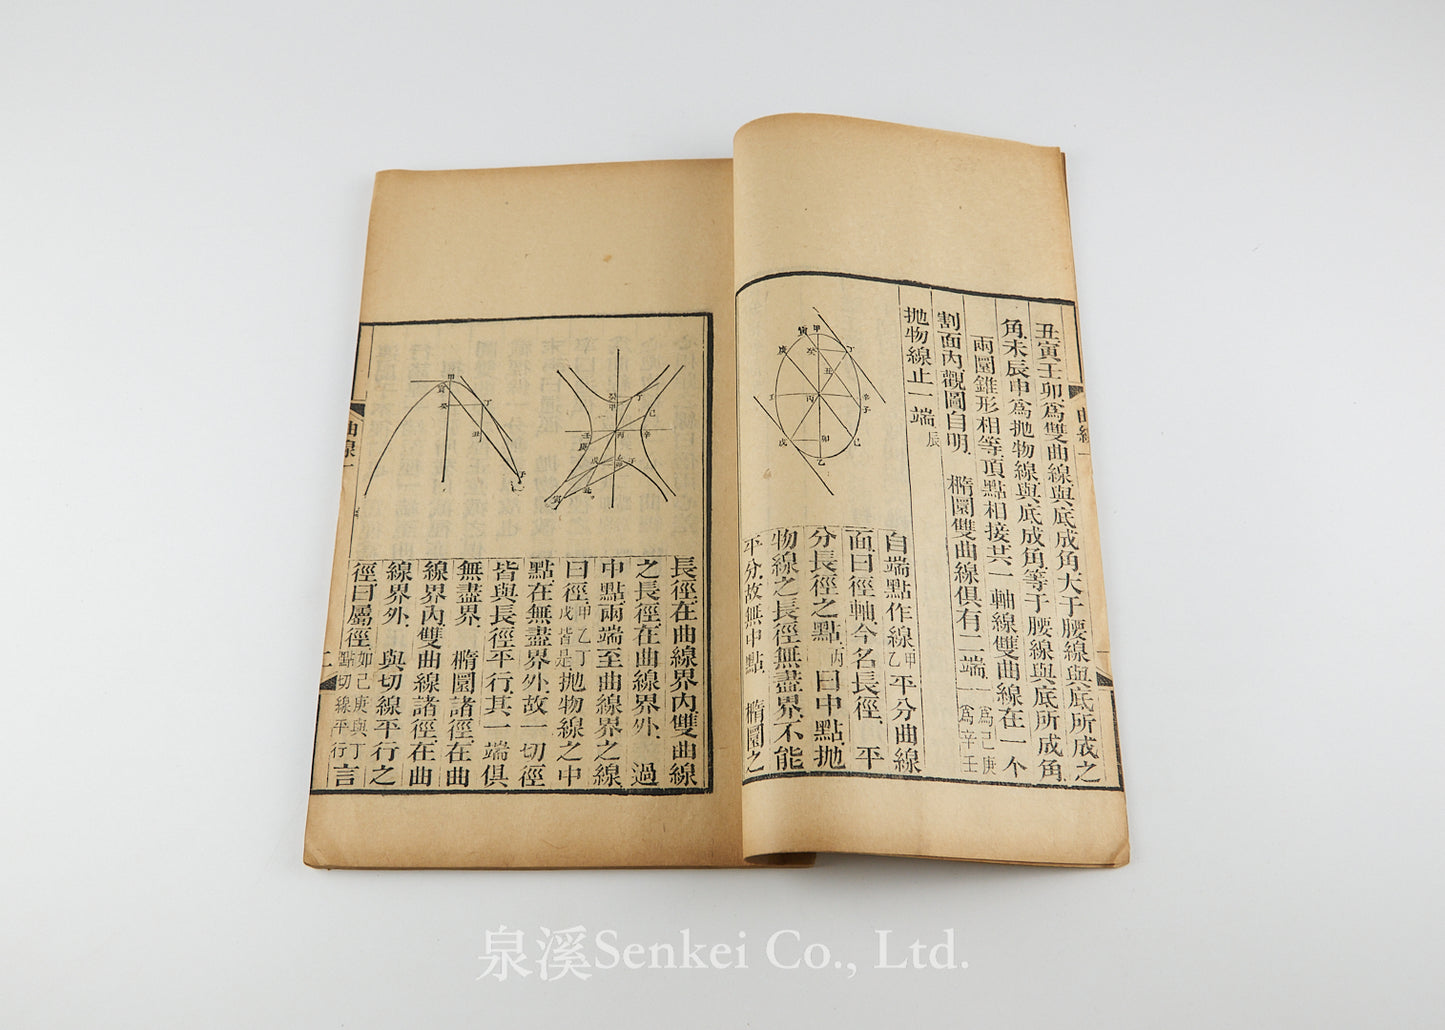 丑寅壬卯爲雙曲線與底成角大于腰線與底所成之
角未辰申爲拋物線與底成角等于腰線與底所成角
兩圜錐形相等頂點相接共一軸線雙曲線在一个
割面內觀圖自明 橢圜雙曲線俱有二端一爲己庚一爲辛壬
拋物線止一端辰
自端點作線甲乙平分曲線
面曰徑軸今名長徑 平
分長徑之點丙曰中點拋
物線之長徑無盡界不能
平分故無中點 橢圜之
長徑在曲線界內雙曲線
之長徑在曲線界外 過
中點兩端至曲線界之線
曰徑甲乙丁戊皆是拋物線之中
點在無盡界外故一切徑
皆與長徑平行其一端俱
無盡界 橢圜諸徑在曲
線界內雙曲線諸徑在曲
線界外 與切線平行之
徑曰屬徑如己庚與丁點切線平行言
曲線一
二
曲線一
泉溪Senkei Co., Ltd.